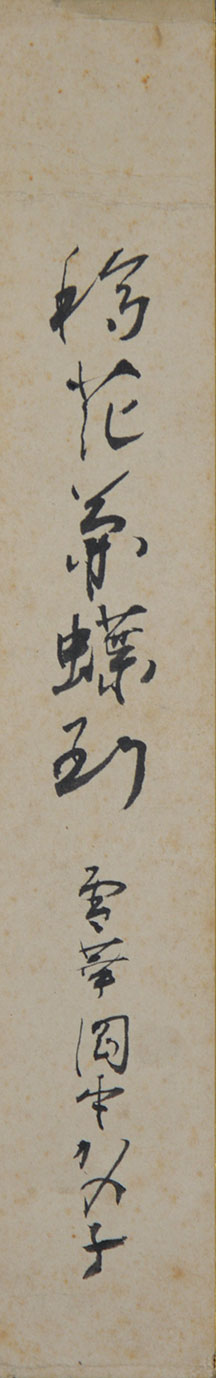 移花兼蝶到 雪華岡本かの子